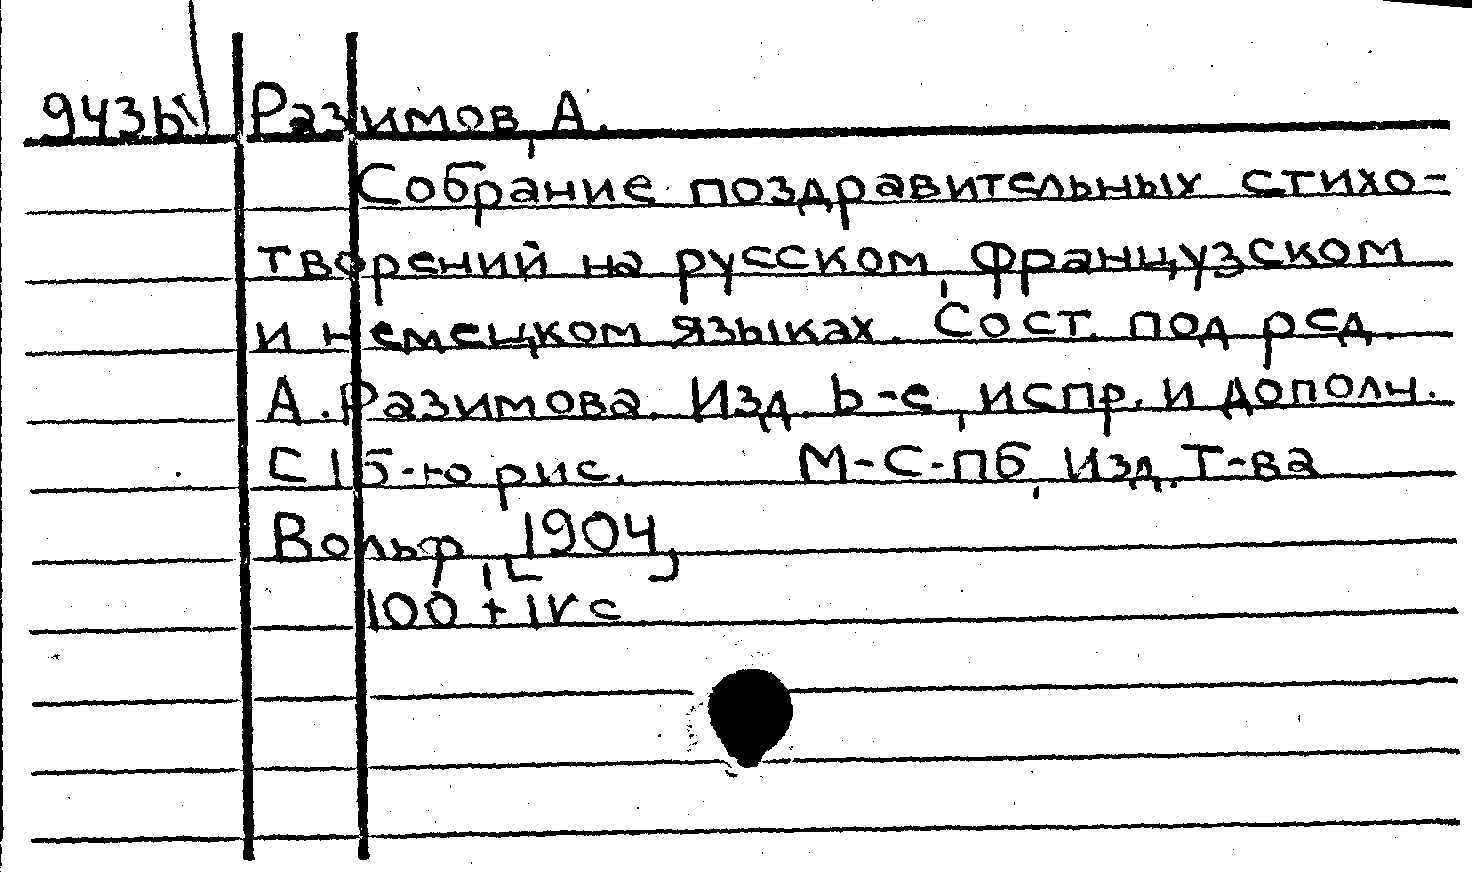 943б Разимов, А.
Собрание поздравительных стихо-
творений на русском, французском
и немецком языках. Сост. под ред.
А. Разимова. Изд. 6-е, испр. и дополн.
С 15-ю рис. М-С-пб, Изд. Т-ва
Вольф, [1904]
100 + IV с